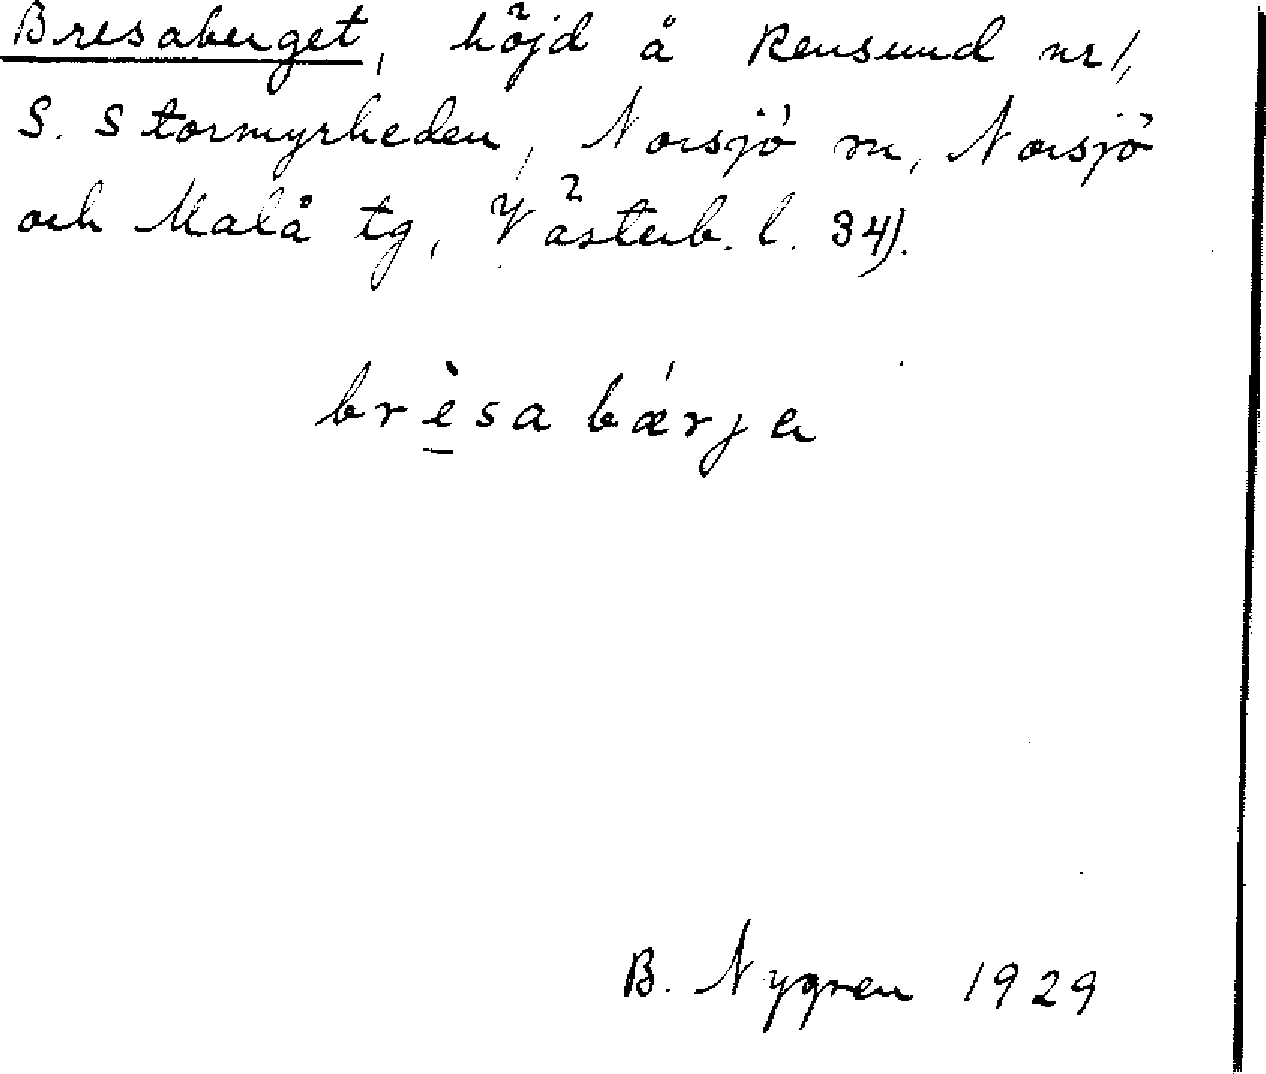 Bresaberget, höjd å Rensund nr 1,
S. Stormyrheden, Norsjö sn, Norsjö
och Malå tg, Västerb. l. 34).
brèsabǽrja
B. Nygren 1929